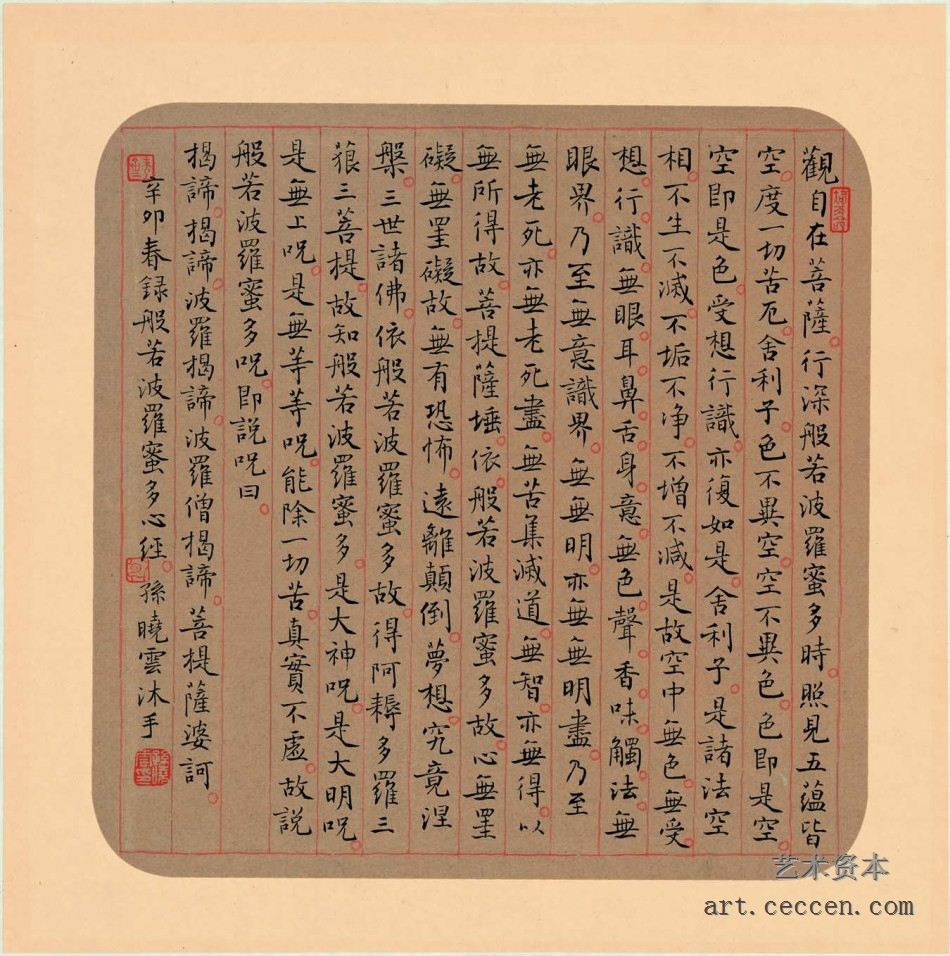 觀自在菩薩行深般若波羅蜜多時照見五蘊皆
空度一切苦厄舍利子色不異空空不異色色即是空
空即是色受想行識亦復如是舍利子是諸法空
相不生不滅不垢不净不增不減是故空中無色無受
想行識無眼耳鼻舌身意無色聲香味觸法無
眼界乃至無意識界無無明亦無無明盡乃至
無老死亦無老死盡無苦集滅道無智亦無得以
無所得故菩提薩埵依般若波羅蜜多故心無罣
礙無罣礙故無有恐怖遠離顛倒夢想究竟涅
槃三世諸佛依般若波羅蜜多故得阿耨多羅三
藐三菩提故知般若波羅蜜多是大神呪是大明呪
是無上呪是無等等呪能除一切苦真實不虛故説
般若波羅蜜多呪即説呪曰
揭諦揭諦波羅揭諦波羅僧揭諦菩提薩婆訶
辛卯春録般若波羅蜜多心經孫曉雲沐手
艺术资本
art.ceccen.com